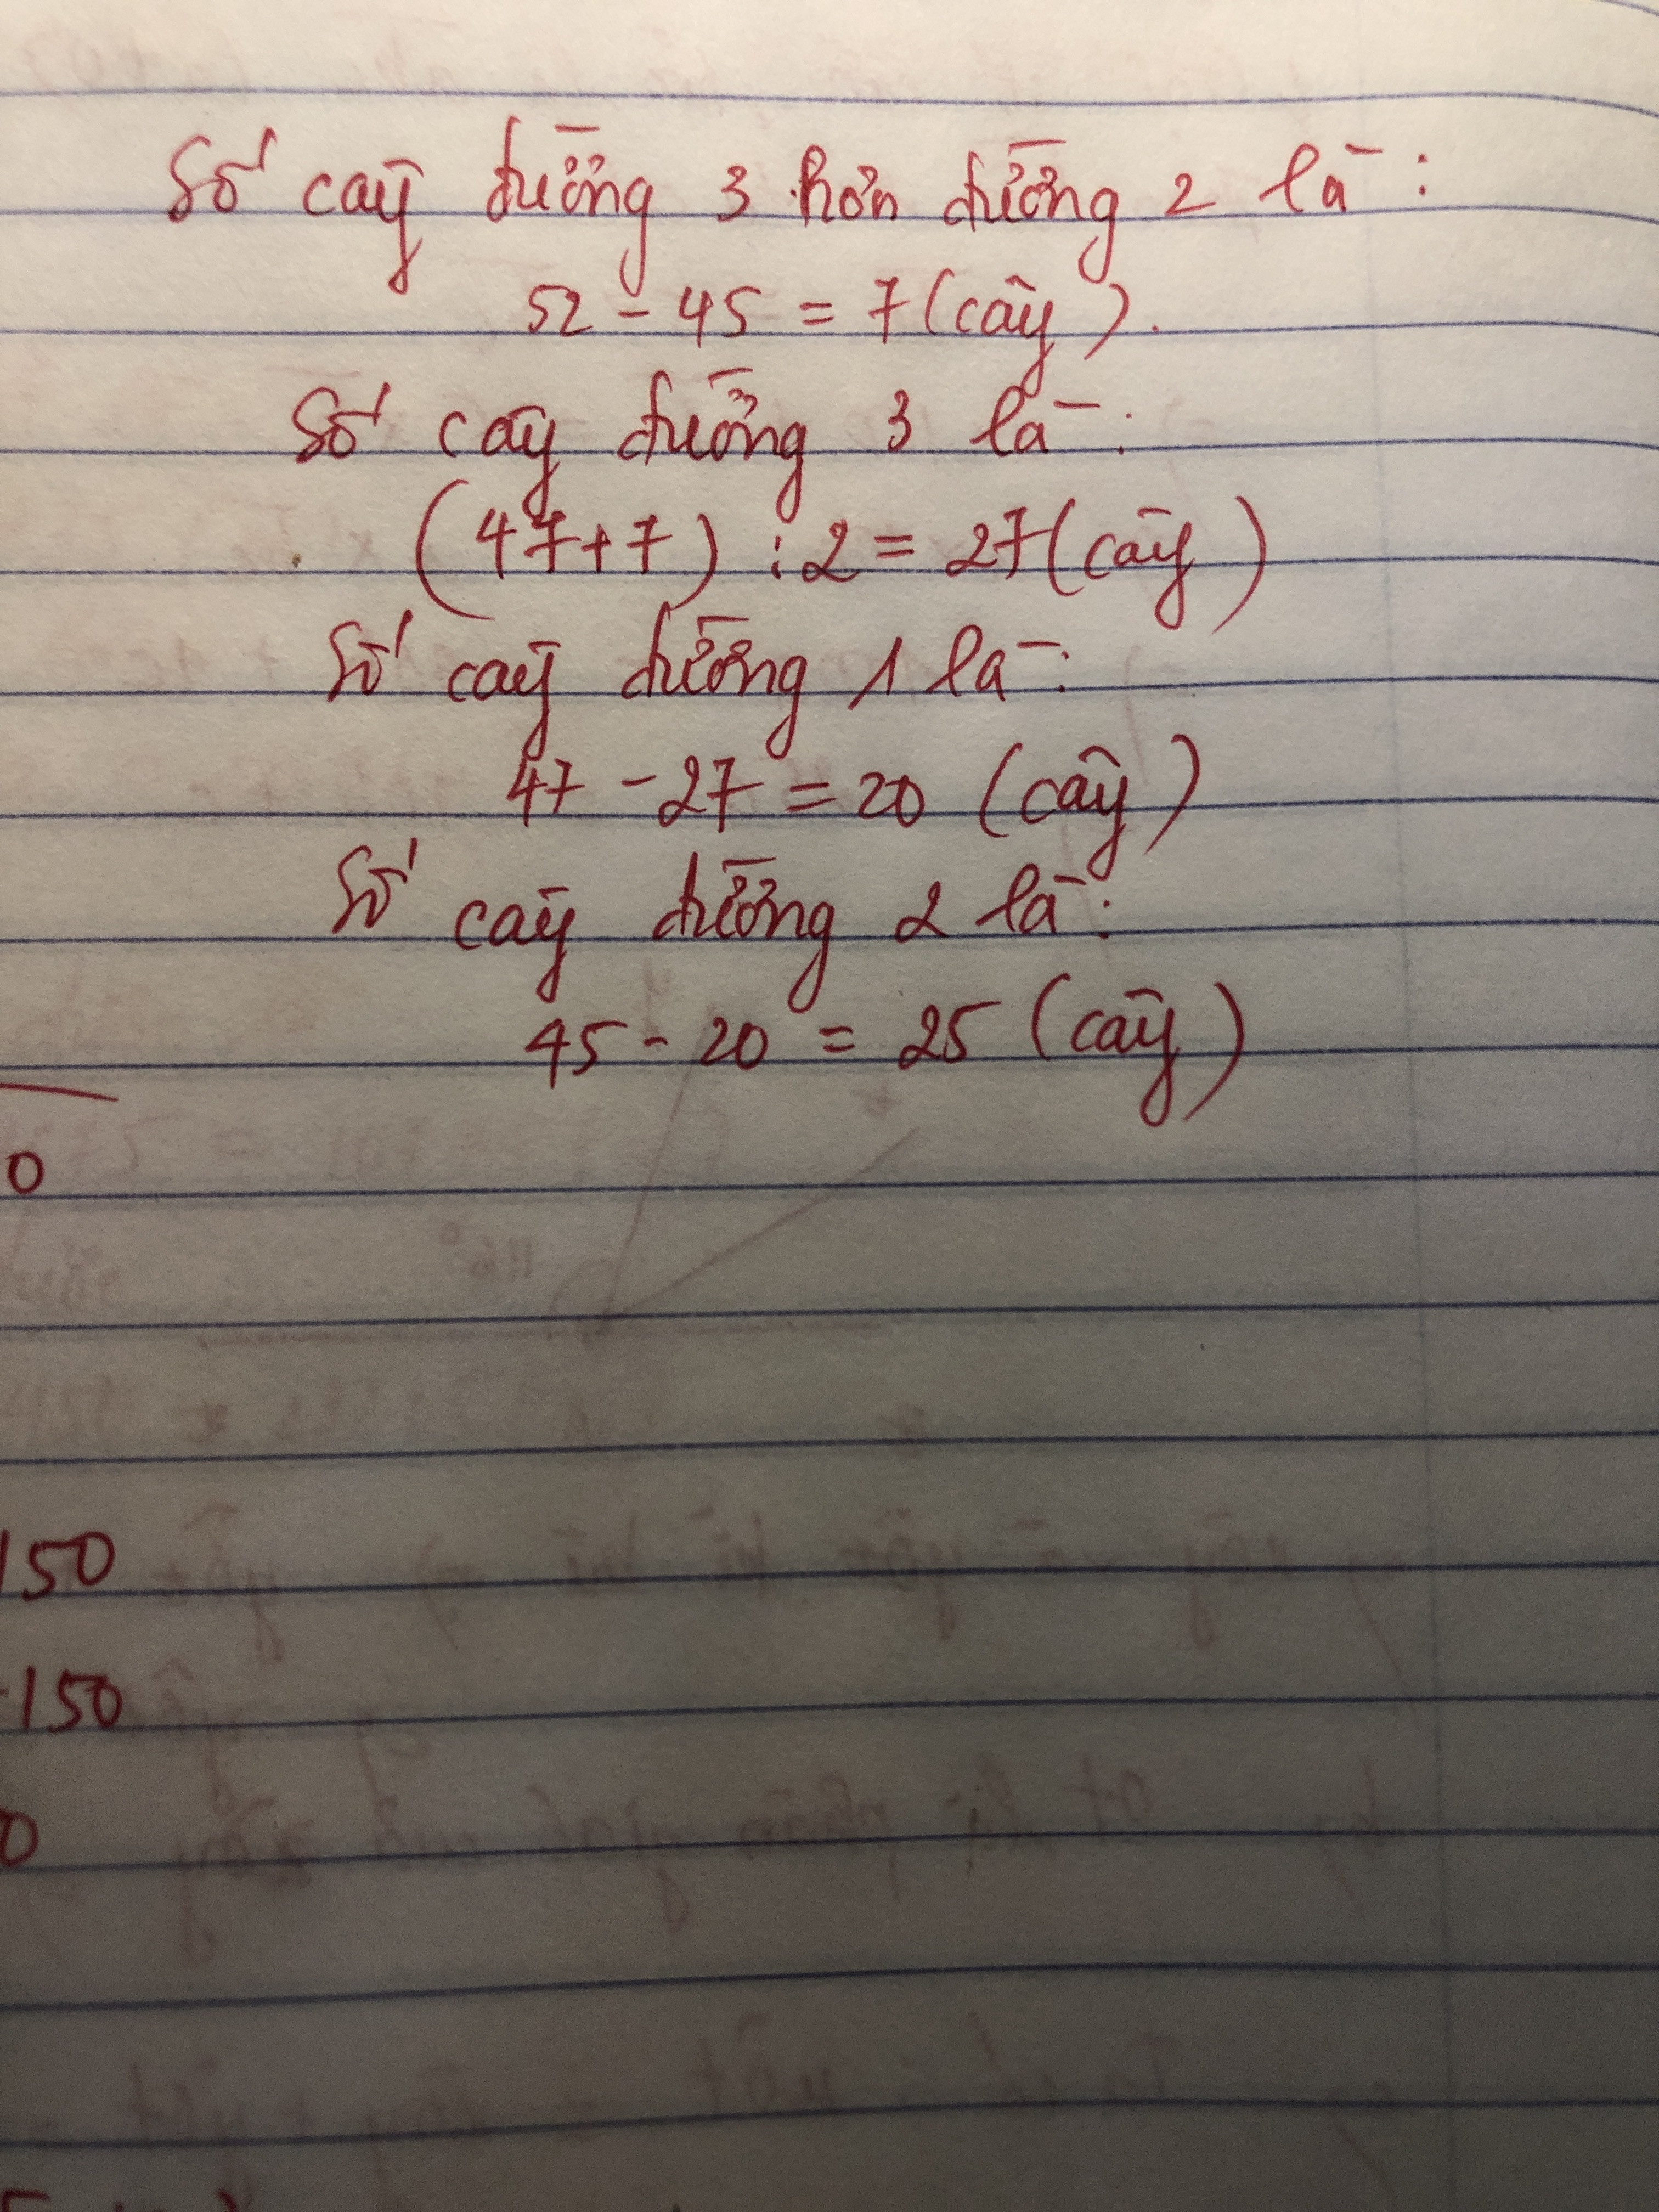 Số cây đường 3 hơn đường 2 là:
52 - 45 = 7 (cây).
Số cây đường 3 là:
(47+7) : 2 = 27 (cây)
Số cây đường 1 là:
47 - 27 = 20 (cây)
Số cây đường 2 là:
45 - 20 = 25 (cây)
0
150
-150
0